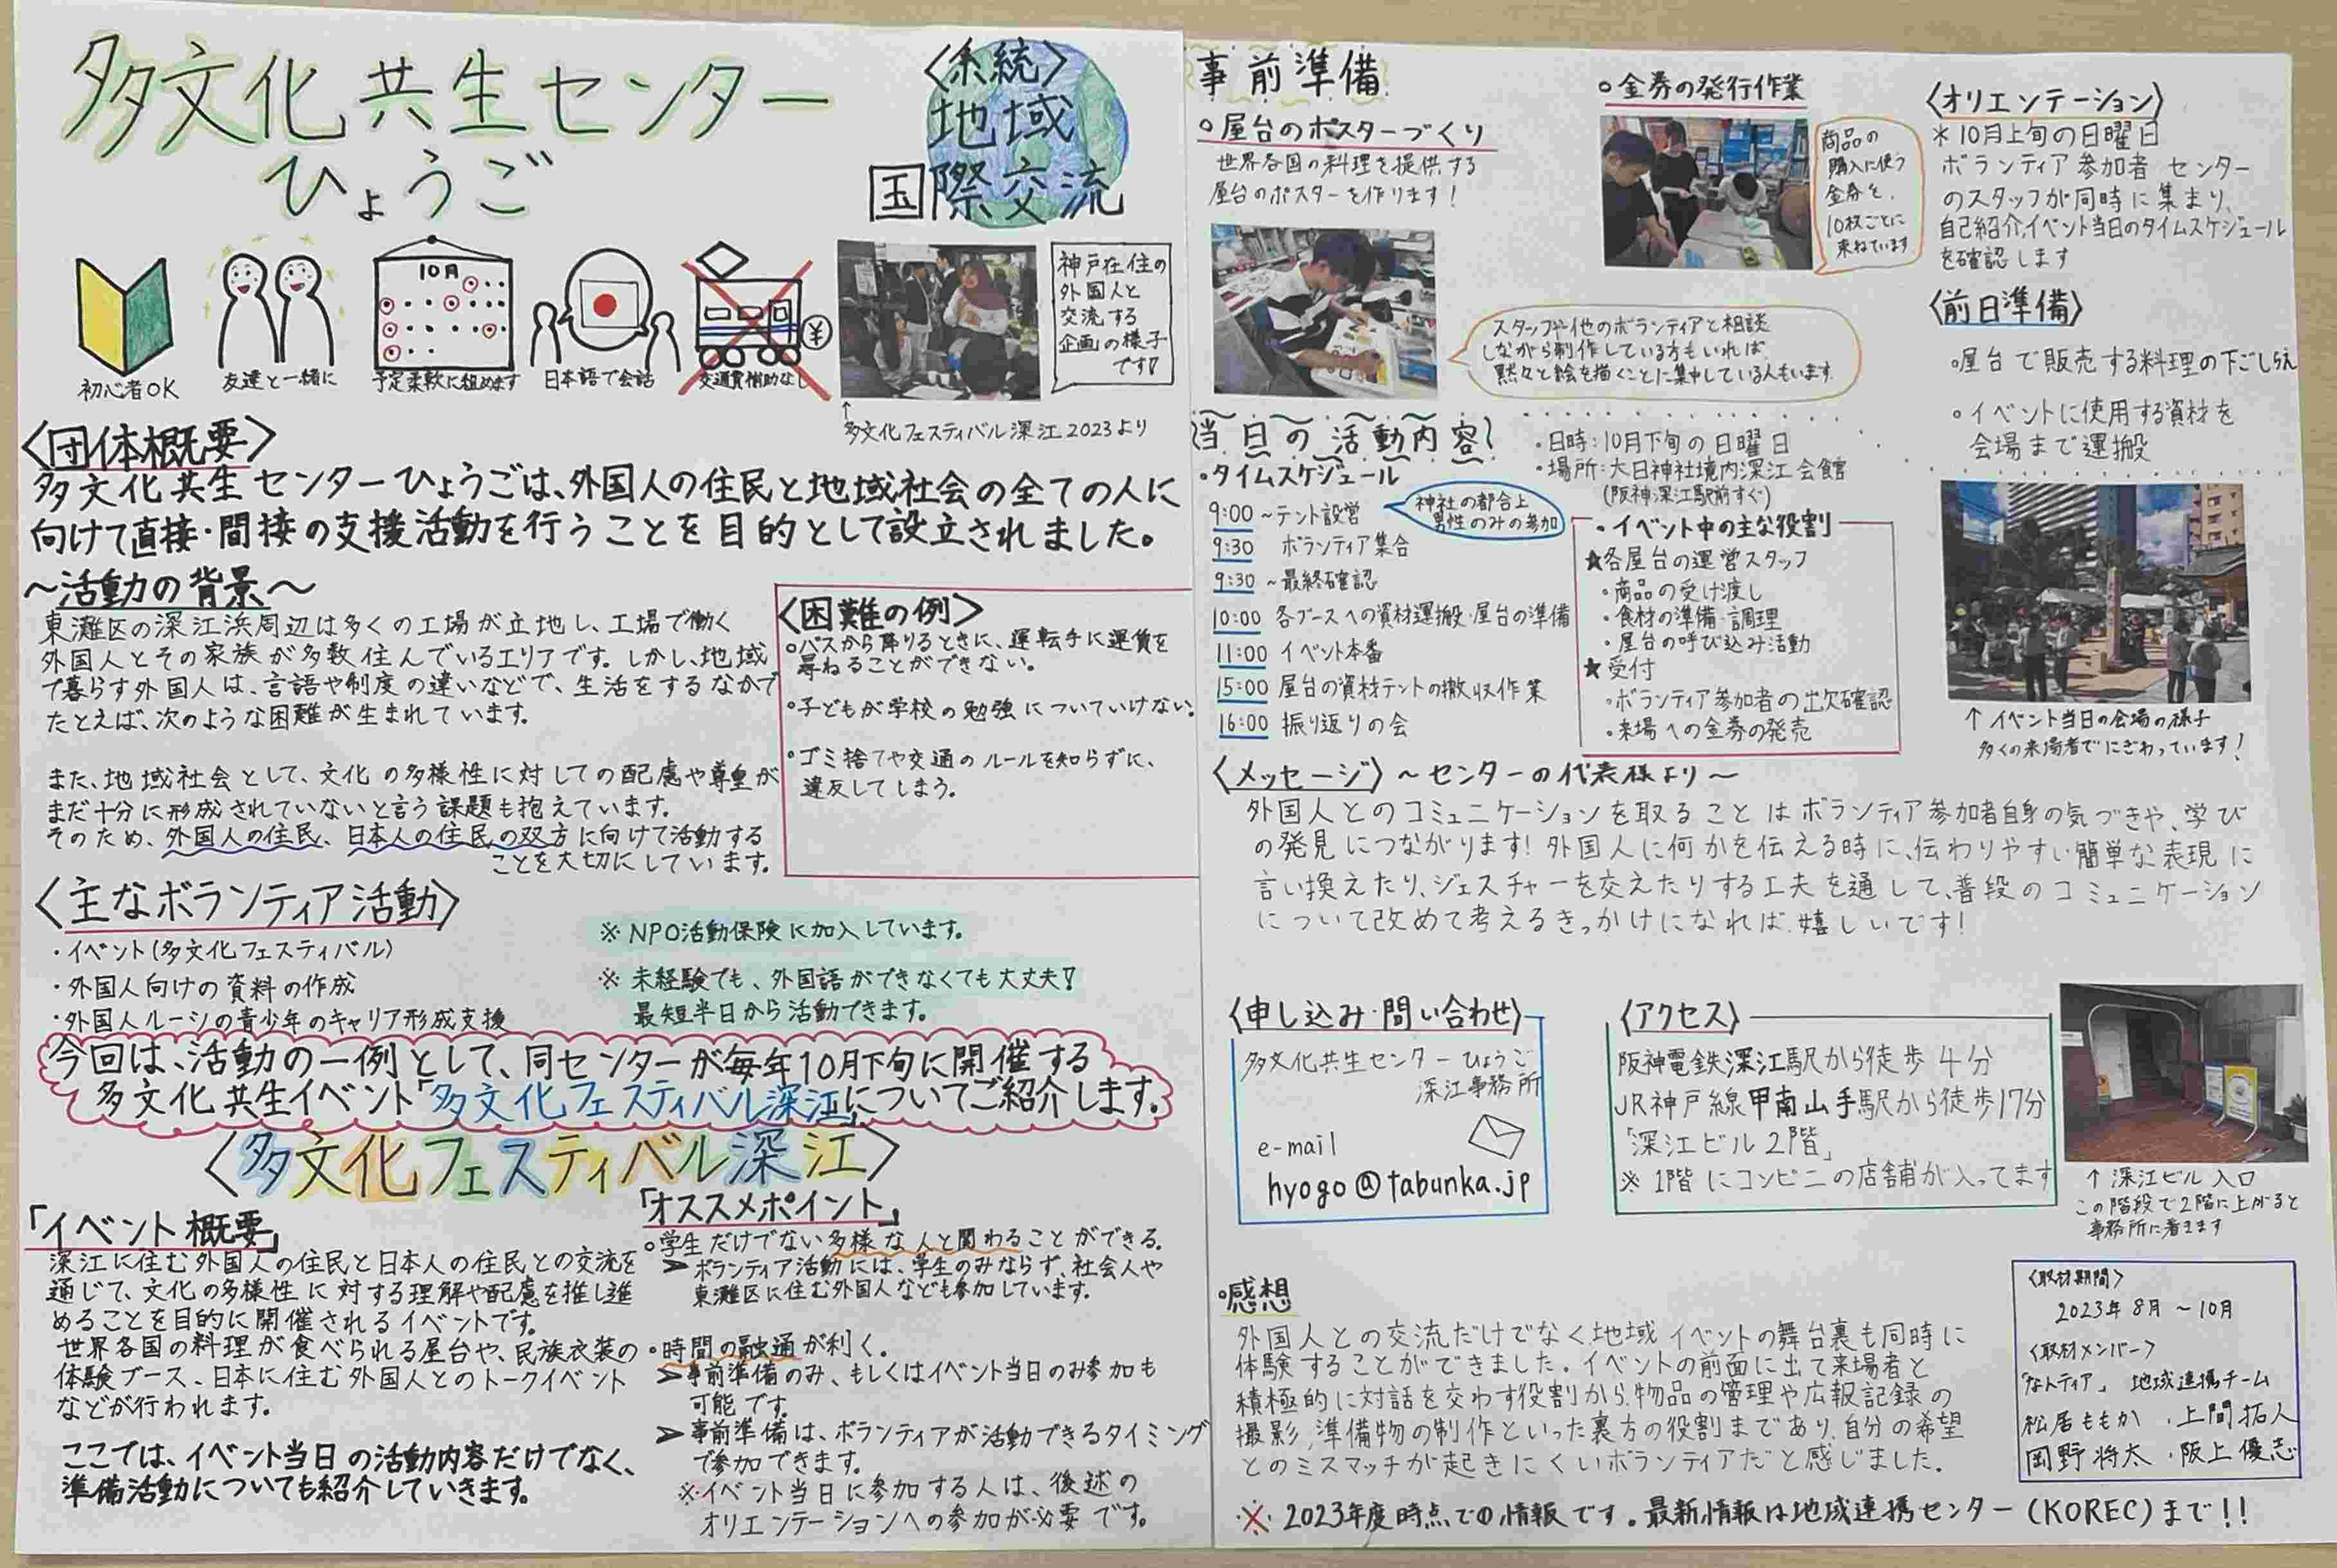 多文化共生センター
ひょうご
〈系統〉
地域
国際交流
初心者OK
友達と一緒に
10月
予定柔軟に組めます
日本語で会話
¥
交通費補助なし
神戸在住の
外国人と
交流する
企画の様子
です!
↑
多文化フェスティバル深江2023より
〈団体概要〉
多文化共生センターひょうごは、外国人の住民と地域社会の全ての人に
向けて直接・間接の支援活動を行うことを目的として設立されました。
〜活動の背景〜
東灘区の深江浜周辺は多くの工場が立地し、工場で働く
外国人とその家族が多数住んでいるエリアです。しかし、地域
で暮らす外国人は、言語や制度の違いなどで、生活をするなかで
たとえば、次のような困難が生まれています。
また、地域社会として、文化の多様性に対しての配慮や尊重が
まだ十分に形成されていないと言う課題も抱えています。
そのため、外国人の住民、日本人の住民の双方に向けて活動する
ことを大切にしています。
〈困難の例〉
○バスから降りるときに、運転手に運賃を
尋ねることができない。
○子どもが学校の勉強についていけない。
○ゴミ捨てや交通のルールを知らずに、
違反してしまう。
〈主なボランティア活動〉
・イベント(多文化フェスティバル)
・外国人向けの資料の作成
・外国人ルーツの青少年のキャリア形成支援
※NPO活動保険に加入しています。
※未経験でも、外国語ができなくても大丈夫!
最短半日から活動できます。
今回は、活動の一例として、同センターが毎年10月下旬に開催する
多文化共生イベント「多文化フェスティバル深江」についてご紹介します。
〈多文化フェスティバル深江〉
「イベント概要」
深江に住む外国人の住民と日本人の住民との交流を
通じて、文化の多様性に対する理解や配慮を推し進
めることを目的に開催されるイベントです。
世界各国の料理が食べられる屋台や、民族衣装の
体験ブース、日本に住む外国人とのトークイベント
などが行われます。
ここでは、イベント当日の活動内容だけでなく、
準備活動についても紹介していきます。
「オススメポイント」
○学生だけでない多様な人と関わることができる。
➤ボランティア活動には、学生のみならず、社会人や
東灘区に住む外国人なども参加しています。
○時間の融通が利く。
➤事前準備のみ、もしくはイベント当日のみ参加も
可能です。
➤事前準備は、ボランティアが活動できるタイミング
で参加できます。
※イベント当日に参加する人は、後述の
オリエンテーションへの参加が必要です。
事前準備
○屋台のポスターづくり
世界各国の料理を提供する
屋台のポスターを作ります!
○金券の発行作業
商品の
購入に使う
金券を、
10枚ごとに
束ねています
スタッフや他のボランティアと相談
しながら制作している方もいれば
黙々と絵を描くことに集中している人もいます。
〈オリエンテーション〉
*10月上旬の日曜日
ボランティア参加者 センター
のスタッフが同時に集まり、
自己紹介、イベント当日のタイムスケジュール
を確認します
〈前日準備〉
○屋台で販売する料理の下ごしらえ
○イベントに使用する資材を
会場まで運搬
当日の活動内容
・日時:10月下旬の日曜日
・場所:大日神社境内深江会館
(阪神深江駅前すぐ)
・タイムスケジュール
9:00〜テント設営
神社の都合上
男性のみの参加
9:30 ボランティア集合
9:30〜最終確認
10:00 各ブースへの資材運搬・屋台の準備
11:00 イベント本番
15:00 屋台の資材テントの撤収作業
16:00 振り返りの会
・イベント中の主な役割
★各屋台の運営スタッフ
・商品の受け渡し
・食材の準備・調理
・屋台の呼び込み活動
★受付
・ボランティア参加者の出欠確認
・来場への金券の発売
↑イベント当日の会場の様子
多くの来場者でにぎわっています!
〈メッセージ〉〜センターの代表様より〜
外国人とのコミュニケーションを取ることはボランティア参加者自身の気づきや、学び
の発見につながります!外国人に何かを伝える時に、伝わりやすい簡単な表現に
言い換えたり、ジェスチャーを交えたりする工夫を通して、普段のコミュニケーション
について改めて考えるきっかけになれば嬉しいです!
〈申し込み・問い合わせ〉
多文化共生センターひょうご
深江事務所
e-mail
hyogo@tabunka.jp
〈アクセス〉
阪神電鉄深江駅から徒歩4分
JR神戸線甲南山手駅から徒歩17分
「深江ビル2階」
※1階にコンビニの店舗が入ってます
↑深江ビル入口
この階段で2階に上がると
事務所に着きます
・感想
外国人との交流だけでなく地域イベントの舞台裏も同時に
体験することができました。イベントの前面に出て来場者と
積極的に対話を交わす役割から、物品の管理や広報記録の
撮影、準備物の制作といった裏方の役割まであり、自分の希望
とのミスマッチが起きにくいボランティアだと感じました。
〈取材期間〉
2023年8月〜10月
〈取材メンバー〉
「なんティア」 地域連携チーム
松居ももか・上間拓人
岡野将太・阪上優志
※2023年度時点での情報です。最新情報は地域連携センター(KOREC)まで!!